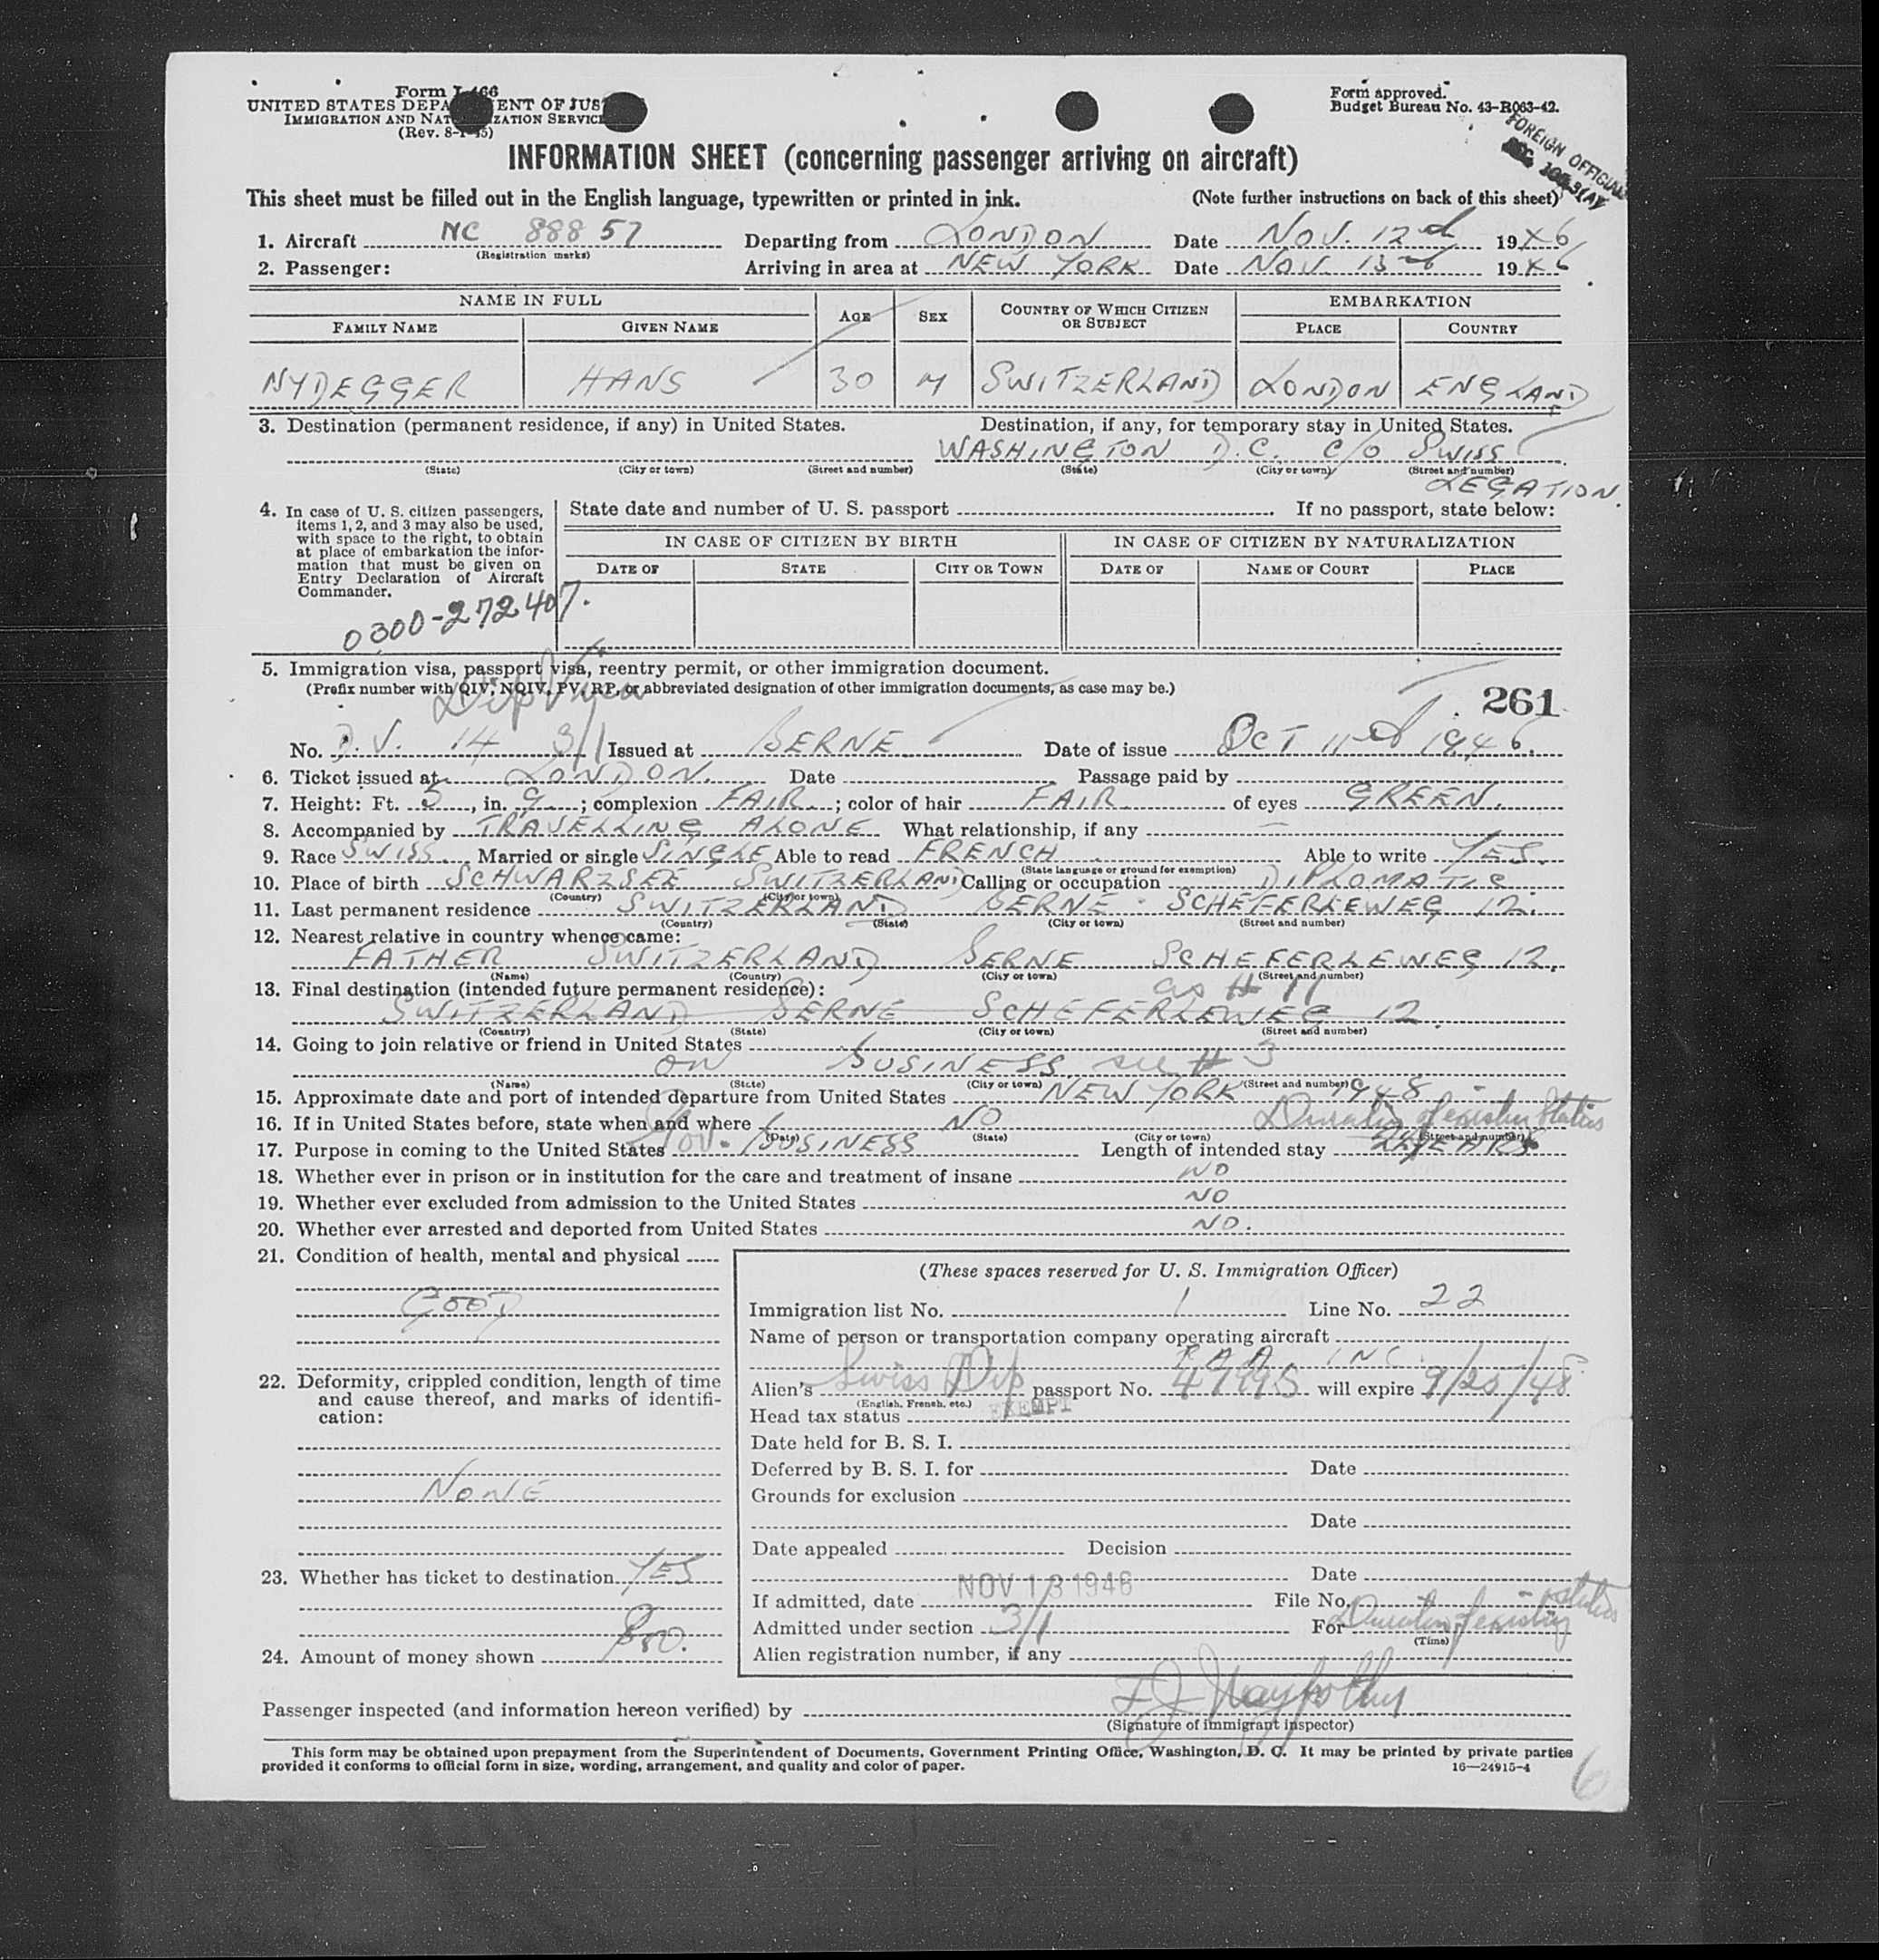 Form I-466
UNITED STATES DEPARTMENT OF JUSTICE
IMMIGRATION AND NATURALIZATION SERVICE
(Rev. 8-1-45)
Form approved.
Budget Bureau No. 43-R063-42.
FOREIGN OFFICIAL
INFORMATION SHEET (concerning passenger arriving on aircraft)
This sheet must be filled out in the English language, typewritten or printed in ink. (Note further instructions on back of this sheet)
1. Aircraft NC 88857 Departing from LONDON Date NOV. 12 1946
(Registration marks)
2. Passenger: Arriving in area at NEW YORK Date NOV. 13 1946
NAME IN FULL AGE SEX COUNTRY OF WHICH CITIZEN OR SUBJECT EMBARKATION
FAMILY NAME GIVEN NAME PLACE COUNTRY
NYDEGGER HANS 30 M SWITZERLAND LONDON ENGLAND
3. Destination (permanent residence, if any) in United States. Destination, if any, for temporary stay in United States.
WASHINGTON D.C. C/O SWISS
(State) (City or town) (Street and number) (State) (City or town) (Street and number)
LEGATION.
4. In case of U. S. citizen passengers, items 1, 2, and 3 may also be used, with space to the right, to obtain at place of embarkation the information that must be given on Entry Declaration of Aircraft Commander.
State date and number of U. S. passport If no passport, state below:
IN CASE OF CITIZEN BY BIRTH IN CASE OF CITIZEN BY NATURALIZATION
DATE OF STATE CITY OR TOWN DATE OF NAME OF COURT PLACE
0300-272407.
5. Immigration visa, passport visa, reentry permit, or other immigration document.
(Prefix number with QIV, NQIV, PV, RP, or abbreviated designation of other immigration documents, as case may be.)
Dip Visa
261
No. D.V. 14 3/1 Issued at BERNE Date of issue OCT 11 1946.
6. Ticket issued at LONDON. Date Passage paid by
7. Height: Ft. 5, in. 9; complexion FAIR; color of hair FAIR of eyes GREEN.
8. Accompanied by TRAVELLING ALONE What relationship, if any —
9. Race SWISS. Married or single SINGLE Able to read FRENCH Able to write YES.
(State language or ground for exemption)
10. Place of birth SCHWARZSEE SWITZERLAND Calling or occupation DIPLOMATIC.
(Country) (City or town)
11. Last permanent residence SWITZERLAND BERNE - SCHEFERLEWEG 12.
(Country) (State) (City or town) (Street and number)
12. Nearest relative in country whence came:
FATHER SWITZERLAND BERNE SCHEFERLEWEG 12.
(Name) (Country) (City or town) (Street and number)
13. Final destination (intended future permanent residence): as # 11
SWITZERLAND BERNE SCHEFERLEWEG 12.
(Country) (State) (City or town) (Street and number)
14. Going to join relative or friend in United States
on BUSINESS. see # 3
(Name) (State) (City or town) (Street and number)
15. Approximate date and port of intended departure from United States NEW YORK 1948 -
16. If in United States before, state when and where NO
Duration of existing Status
(Date) (State) (City or town) (Street and number)
17. Purpose in coming to the United States Gov. BUSINESS Length of intended stay 2 YEARS
18. Whether ever in prison or in institution for the care and treatment of insane NO
19. Whether ever excluded from admission to the United States NO
20. Whether ever arrested and deported from United States NO.
21. Condition of health, mental and physical
GOOD
22. Deformity, crippled condition, length of time and cause thereof, and marks of identification:
NONE
23. Whether has ticket to destination YES
24. Amount of money shown $50.
(These spaces reserved for U. S. Immigration Officer)
Immigration list No. 1 Line No. 22
Name of person or transportation company operating aircraft
P A A INC.
Alien's Swiss Dip passport No. 47995 will expire 9/25/48
(English, French, etc.)
Head tax status EXEMPT
Date held for B. S. I.
Deferred by B. S. I. for Date
Grounds for exclusion
Date
Date appealed Decision
Date
If admitted, date NOV 13 1946 File No.
Admitted under section 3/1 For Duration of existing status
(Time)
Alien registration number, if any
Passenger inspected (and information hereon verified) by
(Signature of immigrant inspector)
This form may be obtained upon prepayment from the Superintendent of Documents, Government Printing Office, Washington, D. C. It may be printed by private parties
provided it conforms to official form in size, wording, arrangement, and quality and color of paper. 16—24915-4
6